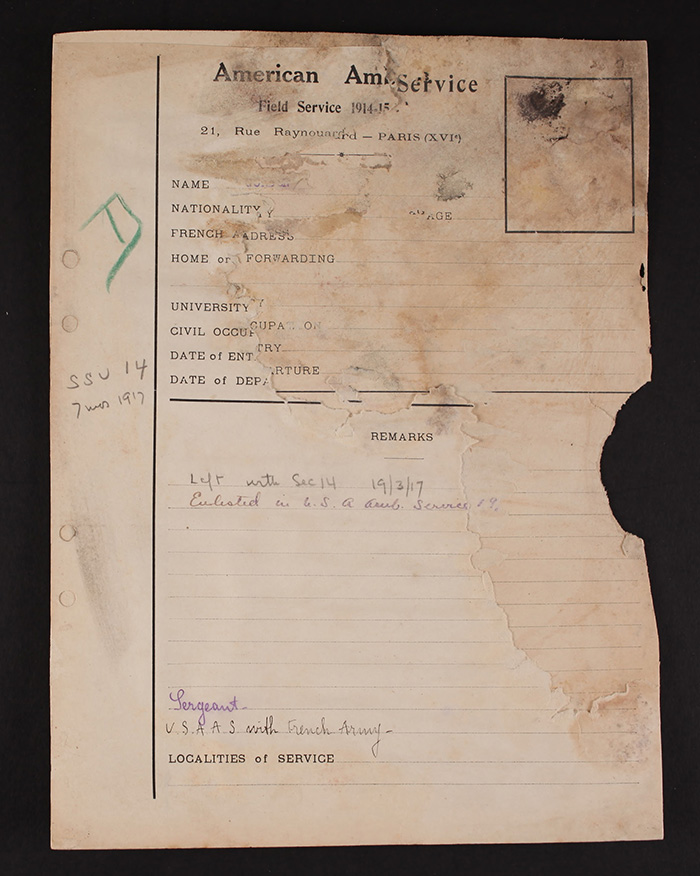 American Am Service
Field Service 1914-15
21, Rue Raynouard — PARIS (XVIe)
NAME
NATIONALITY AGE
FRENCH ADRESS
HOME or FORWARDING
UNIVERSITY
CIVIL OCCUPATION
DATE of ENTRY
DATE of DEPARTURE
D
SSU 14
7 mos 1917
REMARKS
Left with Sec 14 19/3/17
Enlisted in U. S. A Amb. Service
Sergeant-
U.S.A A.S with French Army-
LOCALITIES of SERVICE